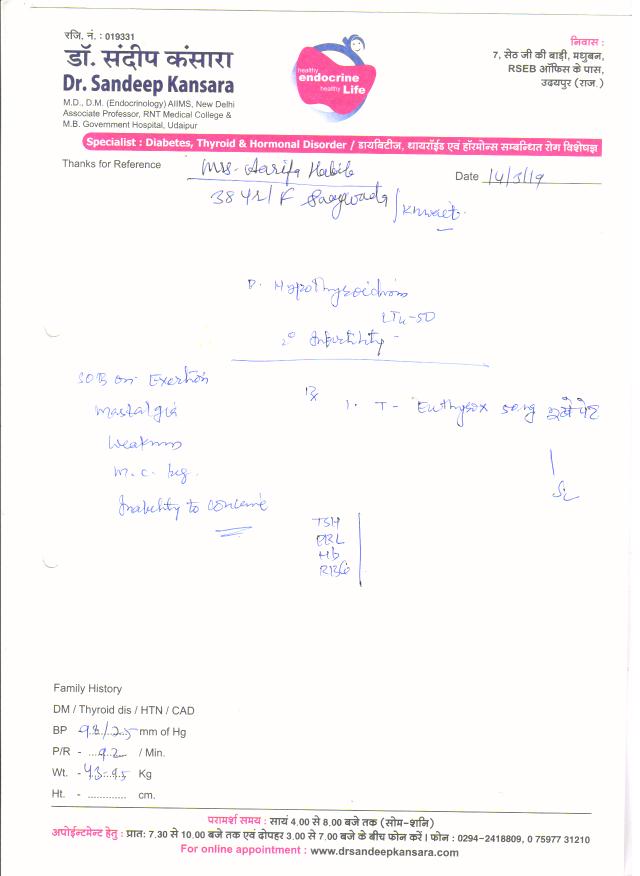 रजि. नं. : 019331
डॉ. संदीप कंसारा
Dr. Sandeep Kansara
M.D., D.M. (Endocrinology) AIIMS, New Delhi
Associate Professor, RNT Medical College &
M.B. Government Hospital, Udaipur
healthy
endocrine
healthy Life
निवास :
7, सेठ जी की बाड़ी, मधुबन,
RSEB ऑफिस के पास,
उदयपुर (राज.)
Specialist : Diabetes, Thyroid & Hormonal Disorder / डायबिटीज, थायरॉईड एवं हॉरमोन्स सम्बन्धित रोग विशेषज्ञ
Thanks for Reference Mrs. Aarifa Habib
Date 14/3/19
38 Yr/ F Sagwada / Kuwait
Hypothyroidism
LT4-50
2° Infertility -
SOB on Exertion
Mastalgia
Weakness
M.C. Reg.
Inability to conceive
Rx
1. T- Euthyrox 50mg
TSH
PRL
Hb
RBG
Family History
DM / Thyroid dis / HTN / CAD
BP mm of Hg
P/R - 92 / Min.
Wt. - Kg
Ht. - ............. cm.
परामर्श समय : सायं 4.00 से 8.00 बजे तक (सोम-शनि)
अपोईन्टमेन्ट हेतु : प्रात: 7.30 से 10.00 बजे तक एवं दोपहर 3.00 से 7.00 बजे के बीच फोन करें । फोन : 0294-2418809, 0 75977 31210
For online appointment : www.drsandeepkansara.com